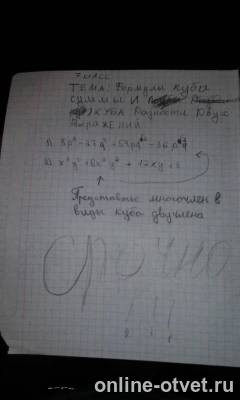 7 класс
ТЕМА: Формулы куба
суммы и
КУБА Разности Двух
Выражений.
1) 8p³ - 27q³ + 54pq² - 36p²q
2) x³y³ + 6x²y² + 12xy + 8
Представьте многочлен в
виды куба двучлена
срочно
!!!
online-otvet.ru